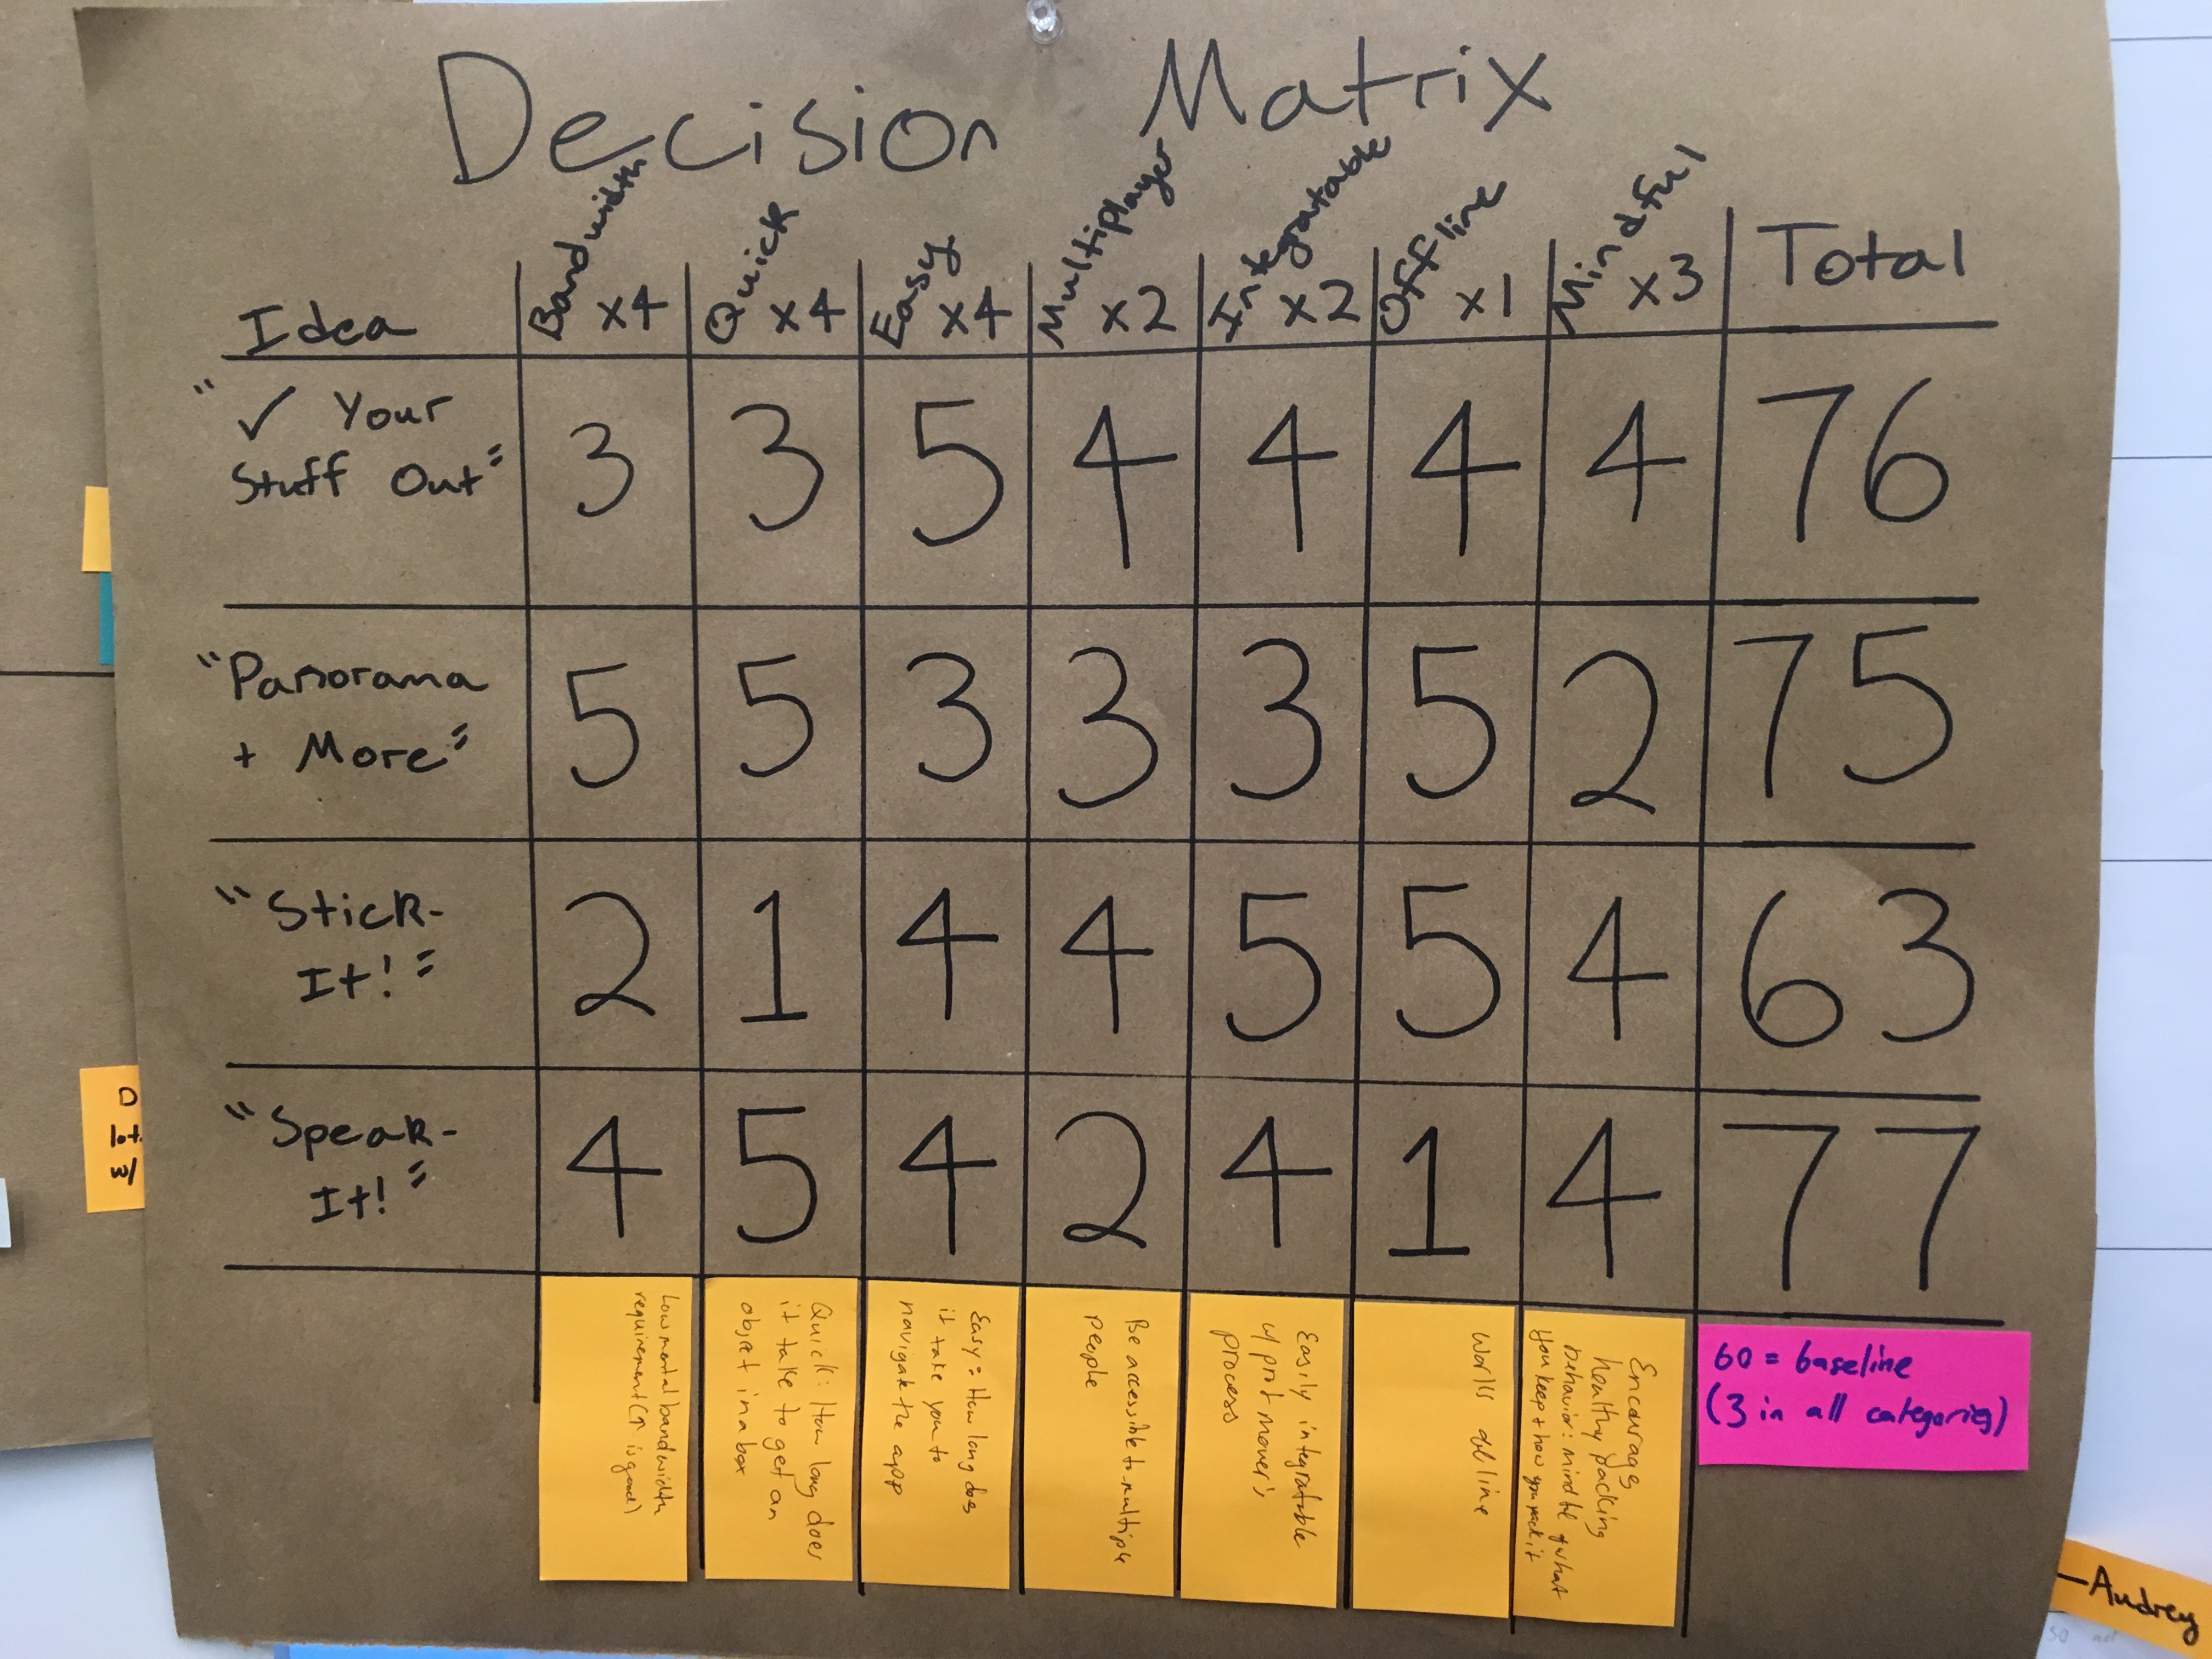 Decision Matrix
Idea
Bandwidth x4
Quick x4
Easy x4
Multiplayer x2
Integratable x2
Offline x1
Mindful x3
Total
"✓ Your
Stuff Out"
3 3 5 4 4 4 4 76
"Panorama
+ More"
5 5 3 3 3 5 2 75
"Stick-
It!"
2 1 4 4 5 5 4 63
"Speak-
It!"
4 5 4 2 4 1 4 77
Low mental bandwidth
requirement (↑ is good)
Quick: How long does
it take to get an
object in a box
Easy = How long does
it take you to
navigate the app
Be accessible to multiple
people
Easily integratable
w/ prof mover's
process
works offline
Encourage
healthy packing
behavior: mindful of what
you keep + how you pack it
60 = baseline
(3 in all categories)
D
lot
w/
-Audrey